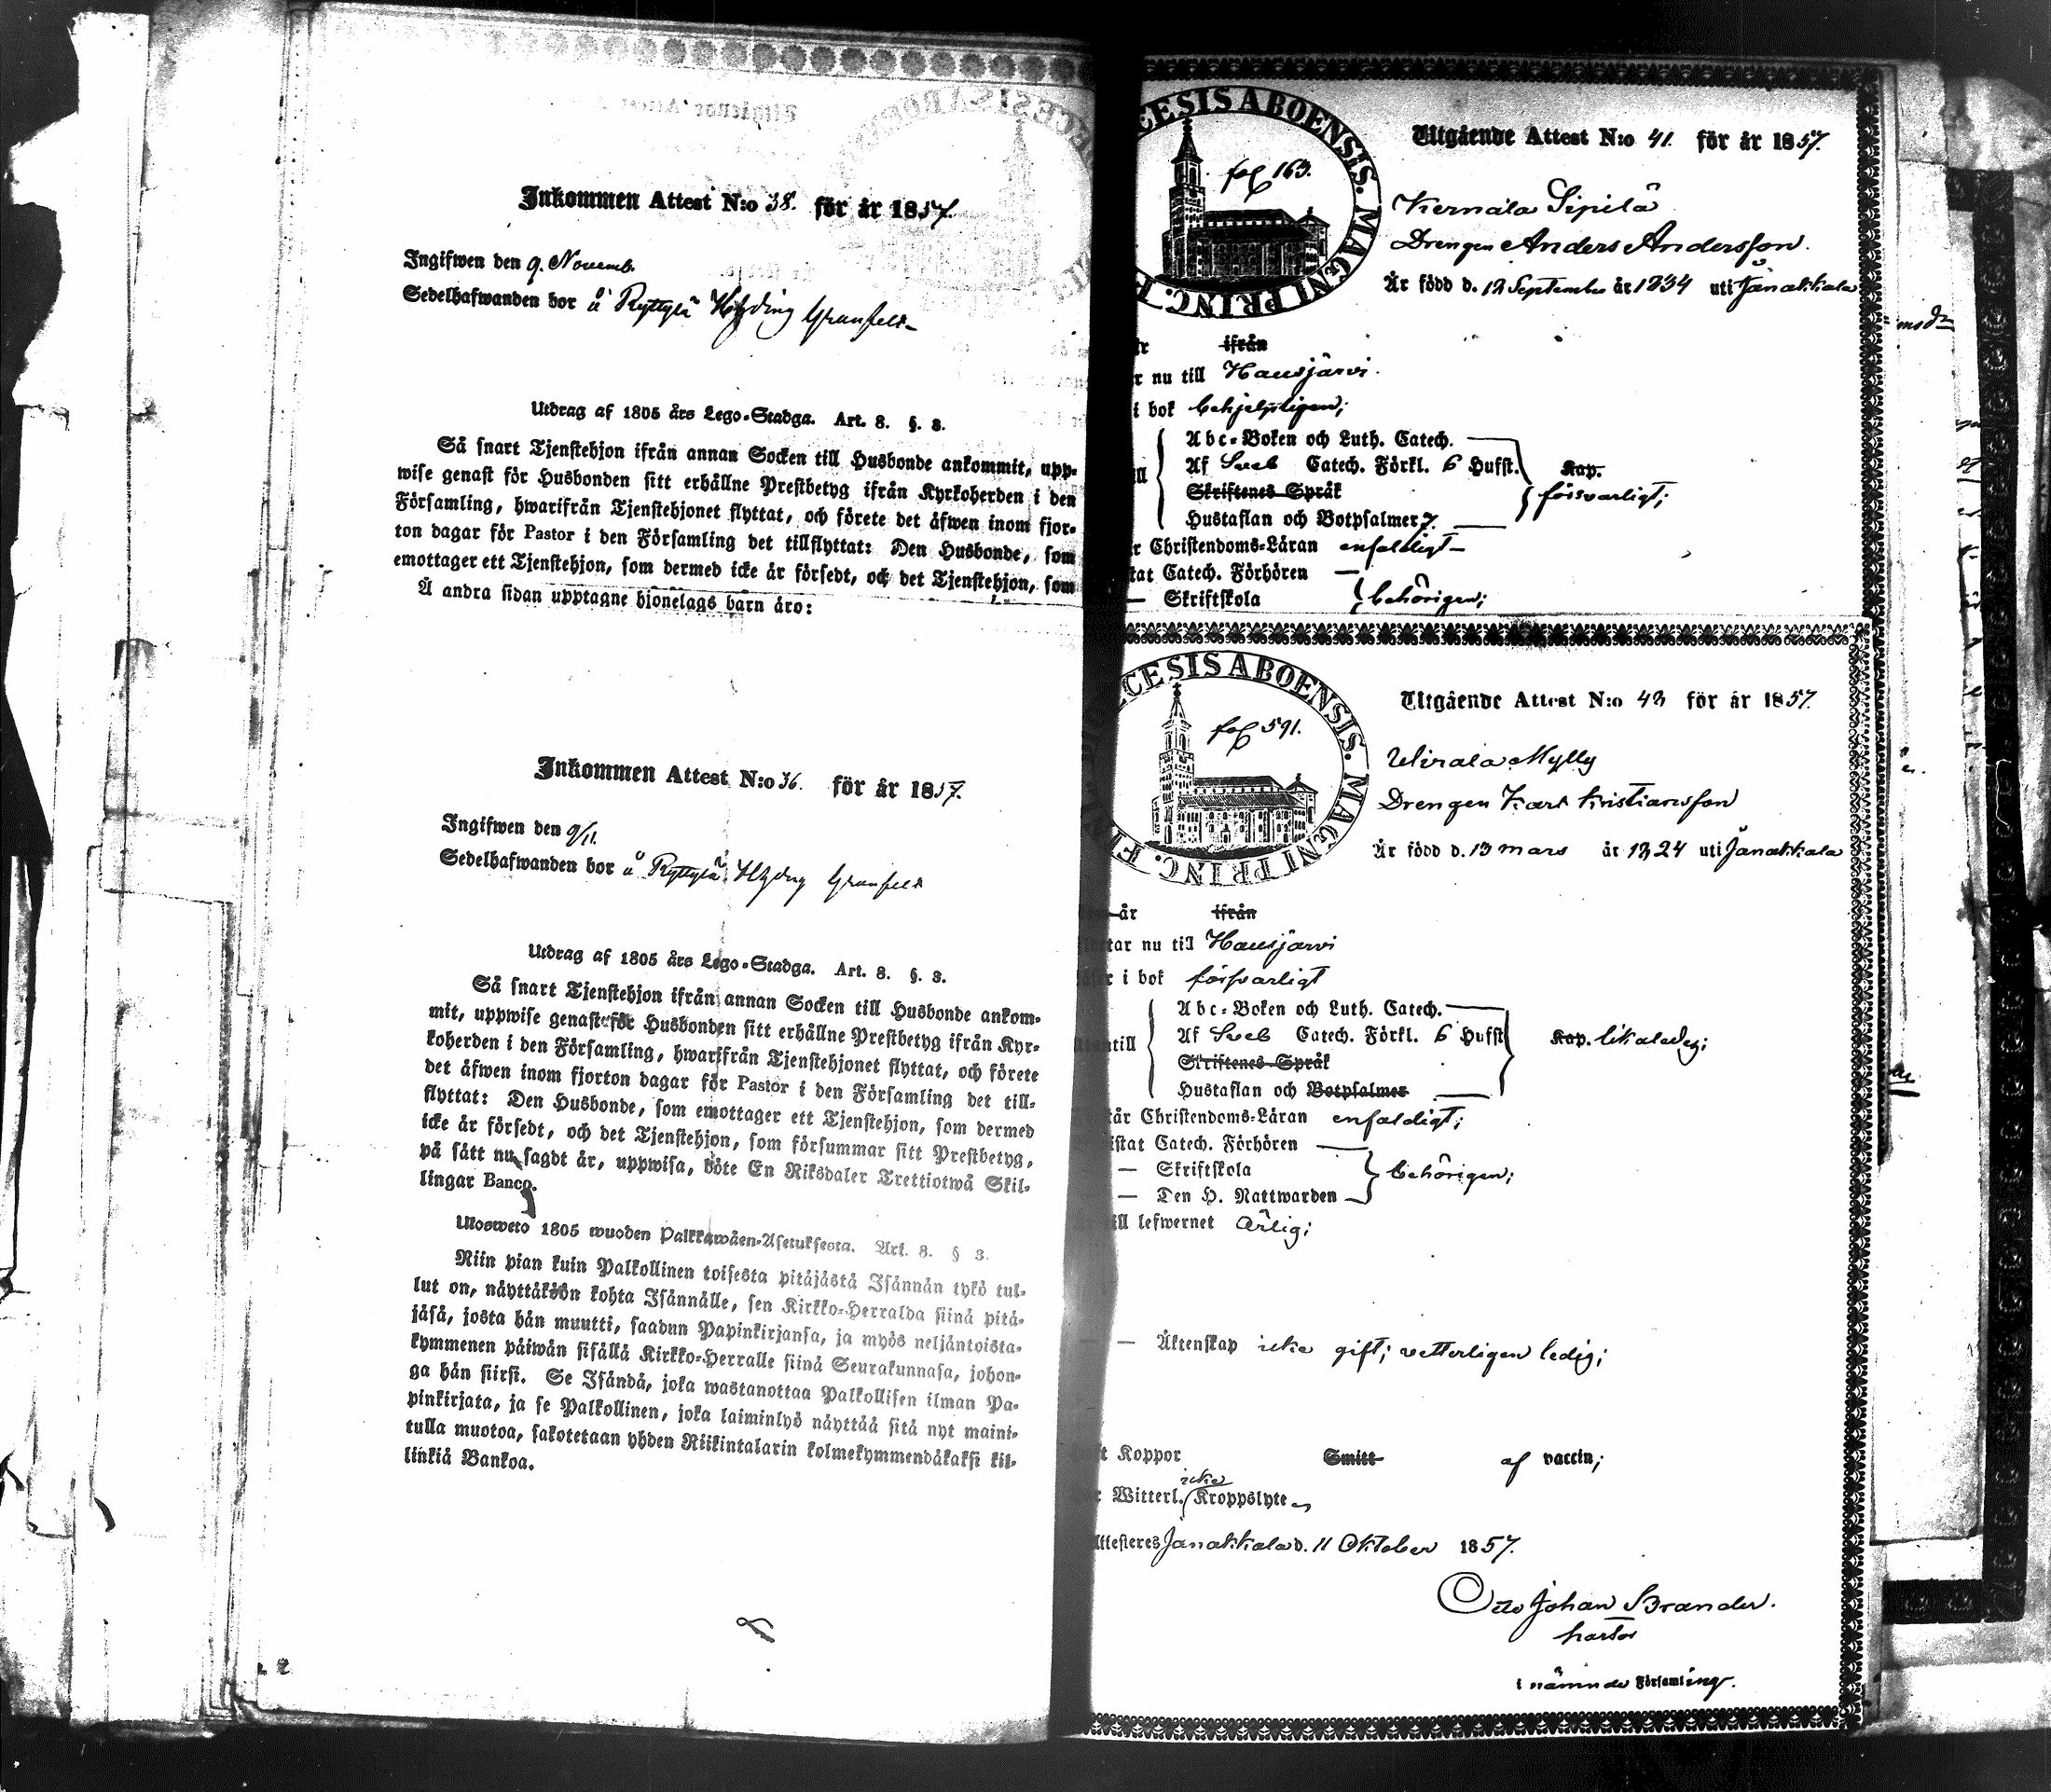 Inkommen Attest N:o 38. för år 1857.
Ingifwen den 9. Novemb.
Sedelhafwanden bor å Ryttylä
Utdrag af 1805 års Lego-Stadga. Art. 8. §. 3.
Så snart Tjenstehjon ifrån annan Socken till Husbonde ankommit, upp-
wise genast för Husbonden sitt erhållne Prestbetyg ifrån Kyrkoherden i den
Församling, hwarifrån Tjenstehjonet flyttat, och förete det äfwen inom fjor-
ton dagar för Pastor i den Församling det tillflyttat: Den Husbonde, som
emottager ett Tjenstehjon, som dermed icke är försedt, och det Tjenstehjon, som
Å andra sidan upptagne hjonelags barn äro:
Inkommen Attest N:o 36. för år 1857.
Ingifwen den 9/11.
Sedelhafwanden bor å Ryttylä
Utdrag af 1805 års Lego-Stadga. Art. 8. §. 3.
Så snart Tjenstehjon ifrån annan Socken till Husbonde ankom-
mit, uppwise genast för Husbonden sitt erhållne Prestbetyg ifrån Kyr-
koherden i den Församling, hwarifrån Tjenstehjonet flyttat, och förete
det äfwen inom fjorton dagar för Pastor i den Församling det till-
flyttat: Den Husbonde, som emottager ett Tjenstehjon, som dermed
icke är försedt, och det Tjenstehjon, som försummar sitt Prestbetyg,
på sätt nu sagdt är, uppwisa, böte En Riksdaler Trettiotwå Skil-
lingar Banco.
Ulosweto 1805 wuoden Palkkawäen-Asetuksesta. Art. 8. § 3.
Niin pian kuin Palkollinen toisesta pitäjästä Isännän tykö tul-
lut on, näyttäköön kohta Isännälle, sen Kirkko-Herralda siinä pitä-
jäsä, josta hän muutti, saadun Papinkirjansa, ja myös neljäntoista-
kymmenen päiwän sisällä Kirkko-Herralle siinä Seurakunnasa, johon-
ga hän siirsi. Se Isändä, joka wastanottaa Palkollisen ilman Pa-
pinkirjata, ja se Palkollinen, joka laiminlyö näyttää sitä nyt maini-
tulla muotoa, sakotetaan yhden Riikintalarin kolmekymmendäkaksi kil-
linkiä Bankoa.
CESIS ABOENSIS. MAGNI PRINC. F
fol 163.
Utgående Attest N:o 41. för år 1857.
Kernala Sipilä
Drengen Anders Andersson.
Är född d. 12 September år 1834 uti Janakkala
ifrån
r nu till Hausjärvi.
i bok behjelpligen;
Abc-Boken och Luth. Catech.
Af Sveb Catech. Förkl. 6 Hufst. Kap.
Skriftenes Språk försvarligt;
Hustaflan och Botpsalmer 7.
r Christendoms-Läran enfaldigt
tat Catech. Förhören
— Skriftskola behörigen;
CESIS ABOENSIS. MAGNI PRINC. FI
fol 591.
Utgående Attest N:o 43 för år 1857.
Wirala Mylly
Drengen Karl Kristiansson
Är född d. 13 mars år 1824 uti Janakkala
är ifrån
ttar nu till Hausjärvi
i bok försvarligt
Abc-Boken och Luth. Catech.
till Af Sveb Catech. Förkl. 6 Hufst Kap. likaledes;
Skriftenes Språk
Hustaflan och Botpsalmer
tår Christendoms-Läran enfaldigt;
istat Catech. Förhören
— Skriftskola behörigen;
— Den H. Nattwarden
till lefwernet ärlig;
— — Äktenskap icke gift; vetterligen ledig;
t Koppor Smitt af vaccin;
icke
Witterl. Kroppslyte
ttesteres Janakkala d. 11 Oktober 1857.
Otto Johan Brander.
i nämnde Församling.